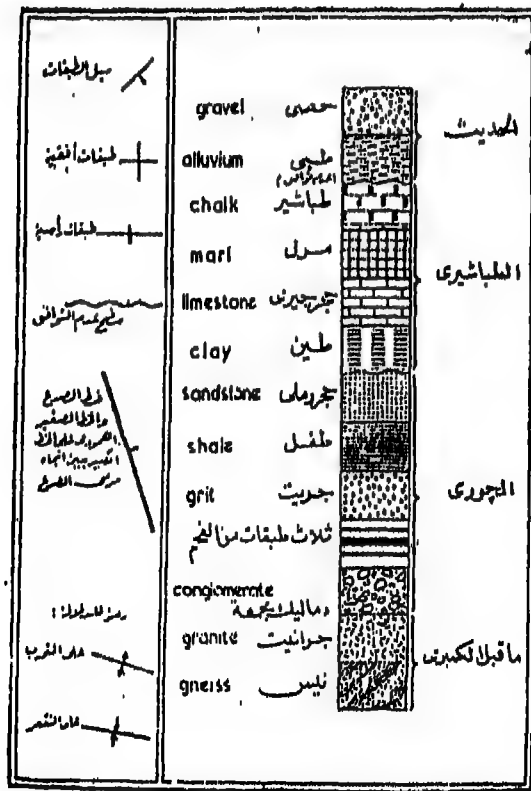 ميل الطبقات
طبقات أفقية
طبقات رأسية
سطح عدم التوافق
خط الصدع
والخط الصغير
العمودى على الخط
الكبير يبين اتجاه
مرمى الصدع
خط التحدب
خط التقعر
gravel حصى
alluvium طمى
عدم توافق
chalk طباشير
marl مرل
limestone حجر جيرى
clay طين
sandstone حجر رملى
shale طفل
grit جريت
ثلاث طبقات من الفحم
conglomerate
دماليك مجمعة
granite جرانيت
gneiss نيس
الحديث
الطباشيرى
الچورى
ما قبل الكمبرى